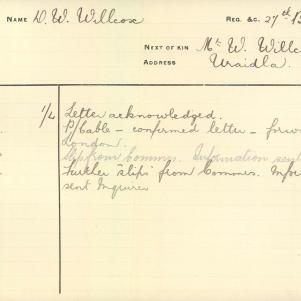 NAME D. W. Willcox REG. &C. 27th B
NEXT OF KIN Mr. W. Willc
ADDRESS Uraidla.
1/4 Letter acknowledged.
P/Cable - confirmed letter - forw
London.
Slip from Commns. Information sent
Further "slips" from Commns. Info
sent Inquirer